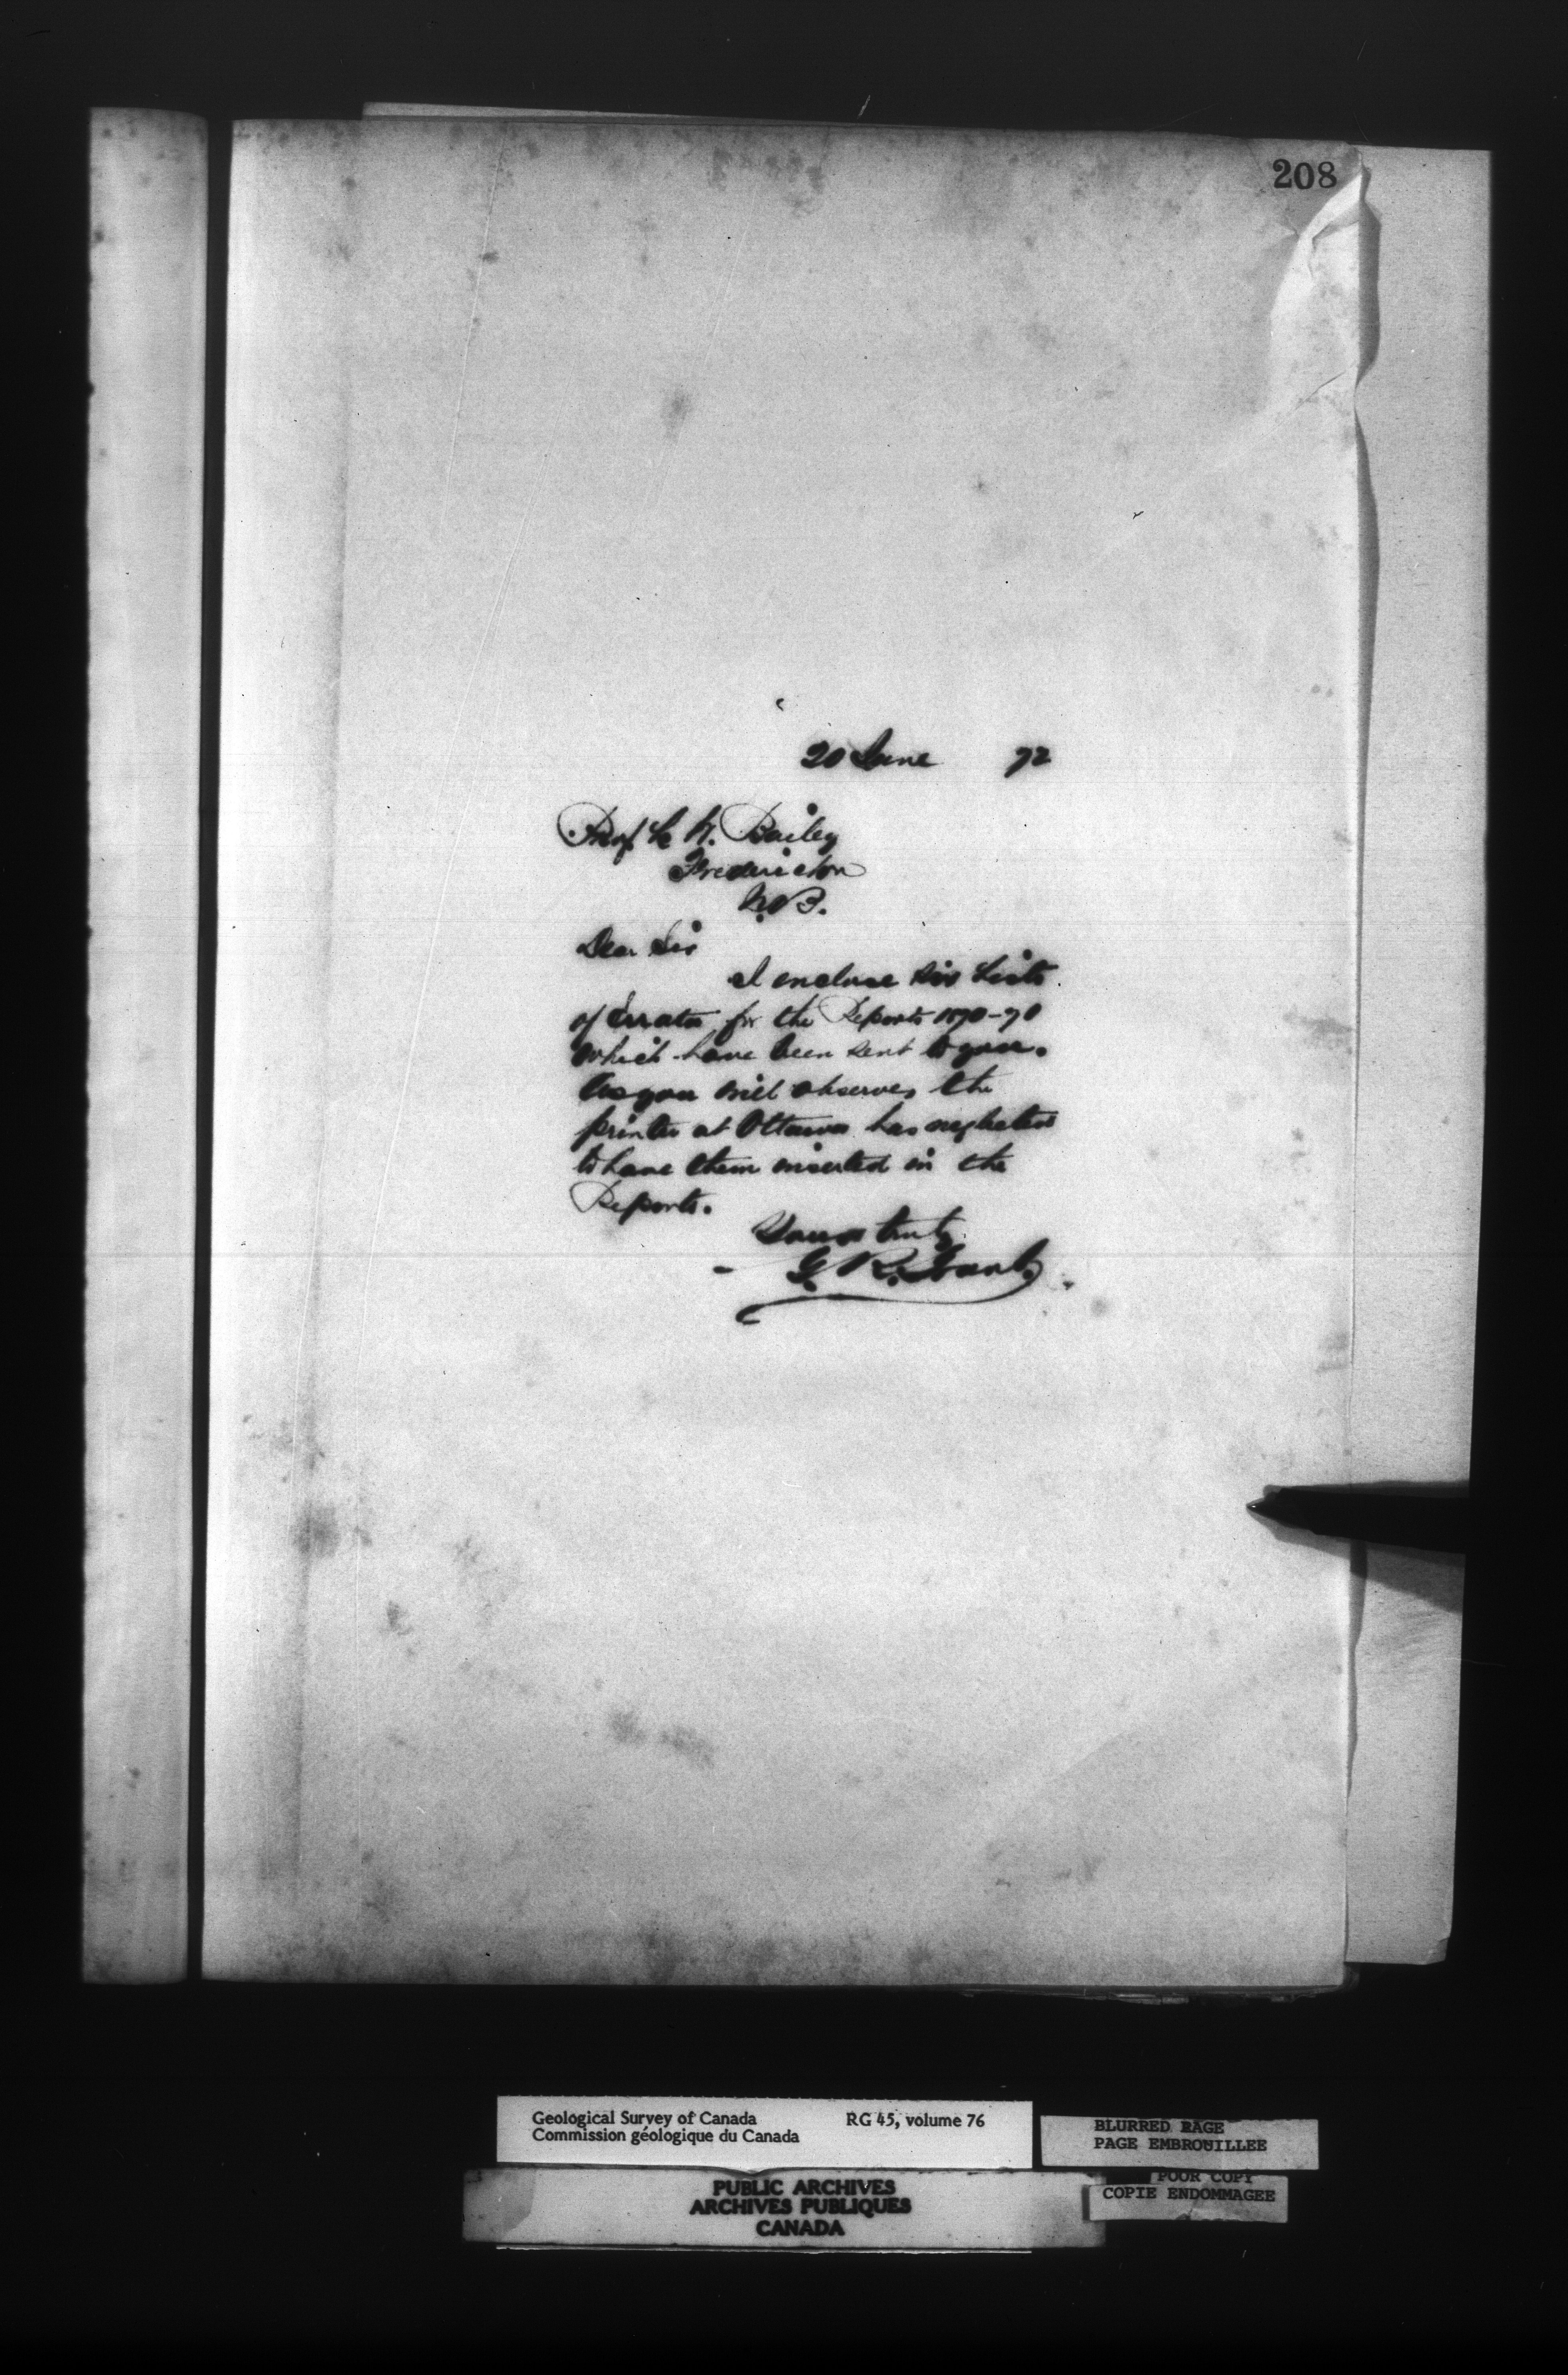 208
20 June 72
Prof L W. Bailey
Fredericton
N.B.
Dear Sir
I enclose six Lists
of Errata for the Reports 1870-70
which have been sent to you.
As you will observe, the
printer at Ottawa has neglected
to have them inserted in the
Reports.
Yours truly
G. R. Grant.
Geological Survey of Canada RG 45, volume 76
Commission géologique du Canada
BLURRED PAGE
PAGE EMBROUILLEE
POOR COPY
COPIE ENDOMMAGEE
PUBLIC ARCHIVES
ARCHIVES PUBLIQUES
CANADA